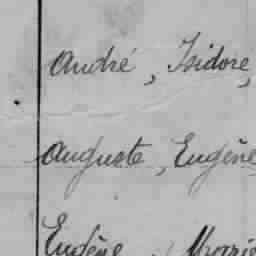 André, Isidore,
Auguste, Eugène
Eugène, Marie